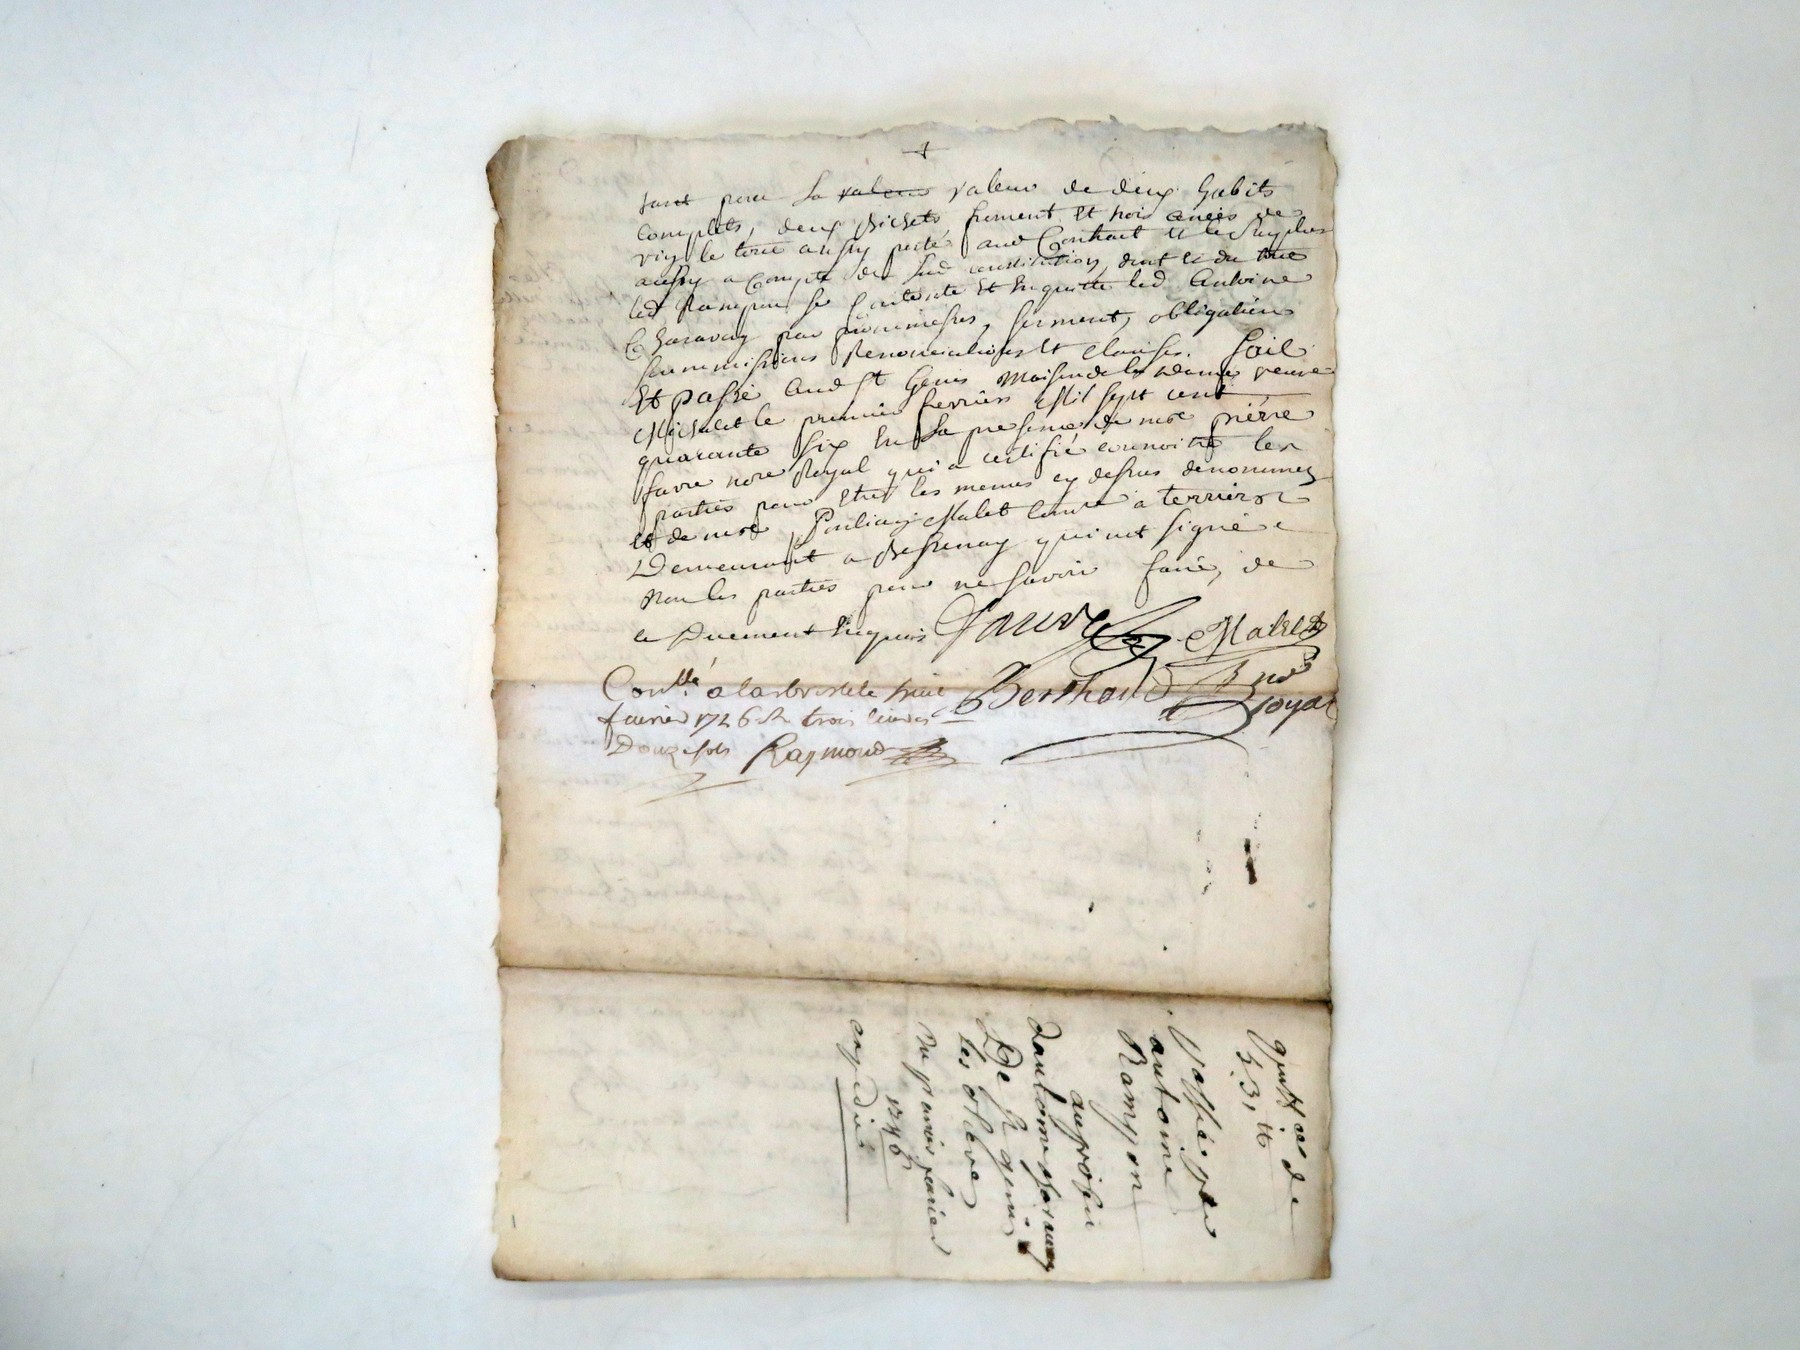 tant pour la valeur valeur de deux habits
complets, deux bichets froment et trois anées de
vin le tout aussy porté aud Contract et le Surplus
aussy a Compte de lad constitution, dont et du tout
led Rampon se Contente et Enquitte led Antoine
Charavay par promesses, serment, obligations
soummissions Renonciations et clauses. fait
Et passé aud st Genis Maison de la dame veuve
Michalet le premier fevrier Mil sept cent
quarante six En la presence de me pierre
favre nore Royal qui a certifié connoitre les
parties pour Etre les memes cy dessus denommez
et de me Malet a terrier
Demeurant a Bessenay qui ont signé
Non les parties pour ne savoir faire, de
ce Duement Enquis favre Malet
Conllé a larbresle le huit Berthaud nre
fevrier 1746 R trois livres Royal
Douze sols Raymond
quittce de
53, tt
passée par
antoine
Rampon
au profit
danthoine charavay
De st genis
les ollières
Du premier fevrier
1746
expedié